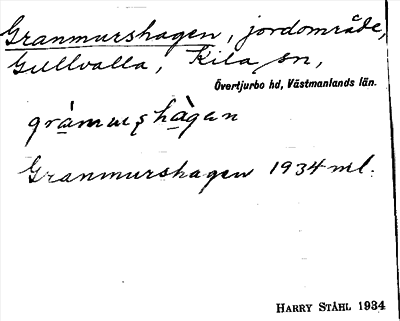 Granmurshagen, jordområde,
Gullvalla, Kila sn,
Övertjurbo hd, Västmanlands län.
gràmuʂhàgan
Granmurshagen 1934 ml.
HARRY STÅHL 1934